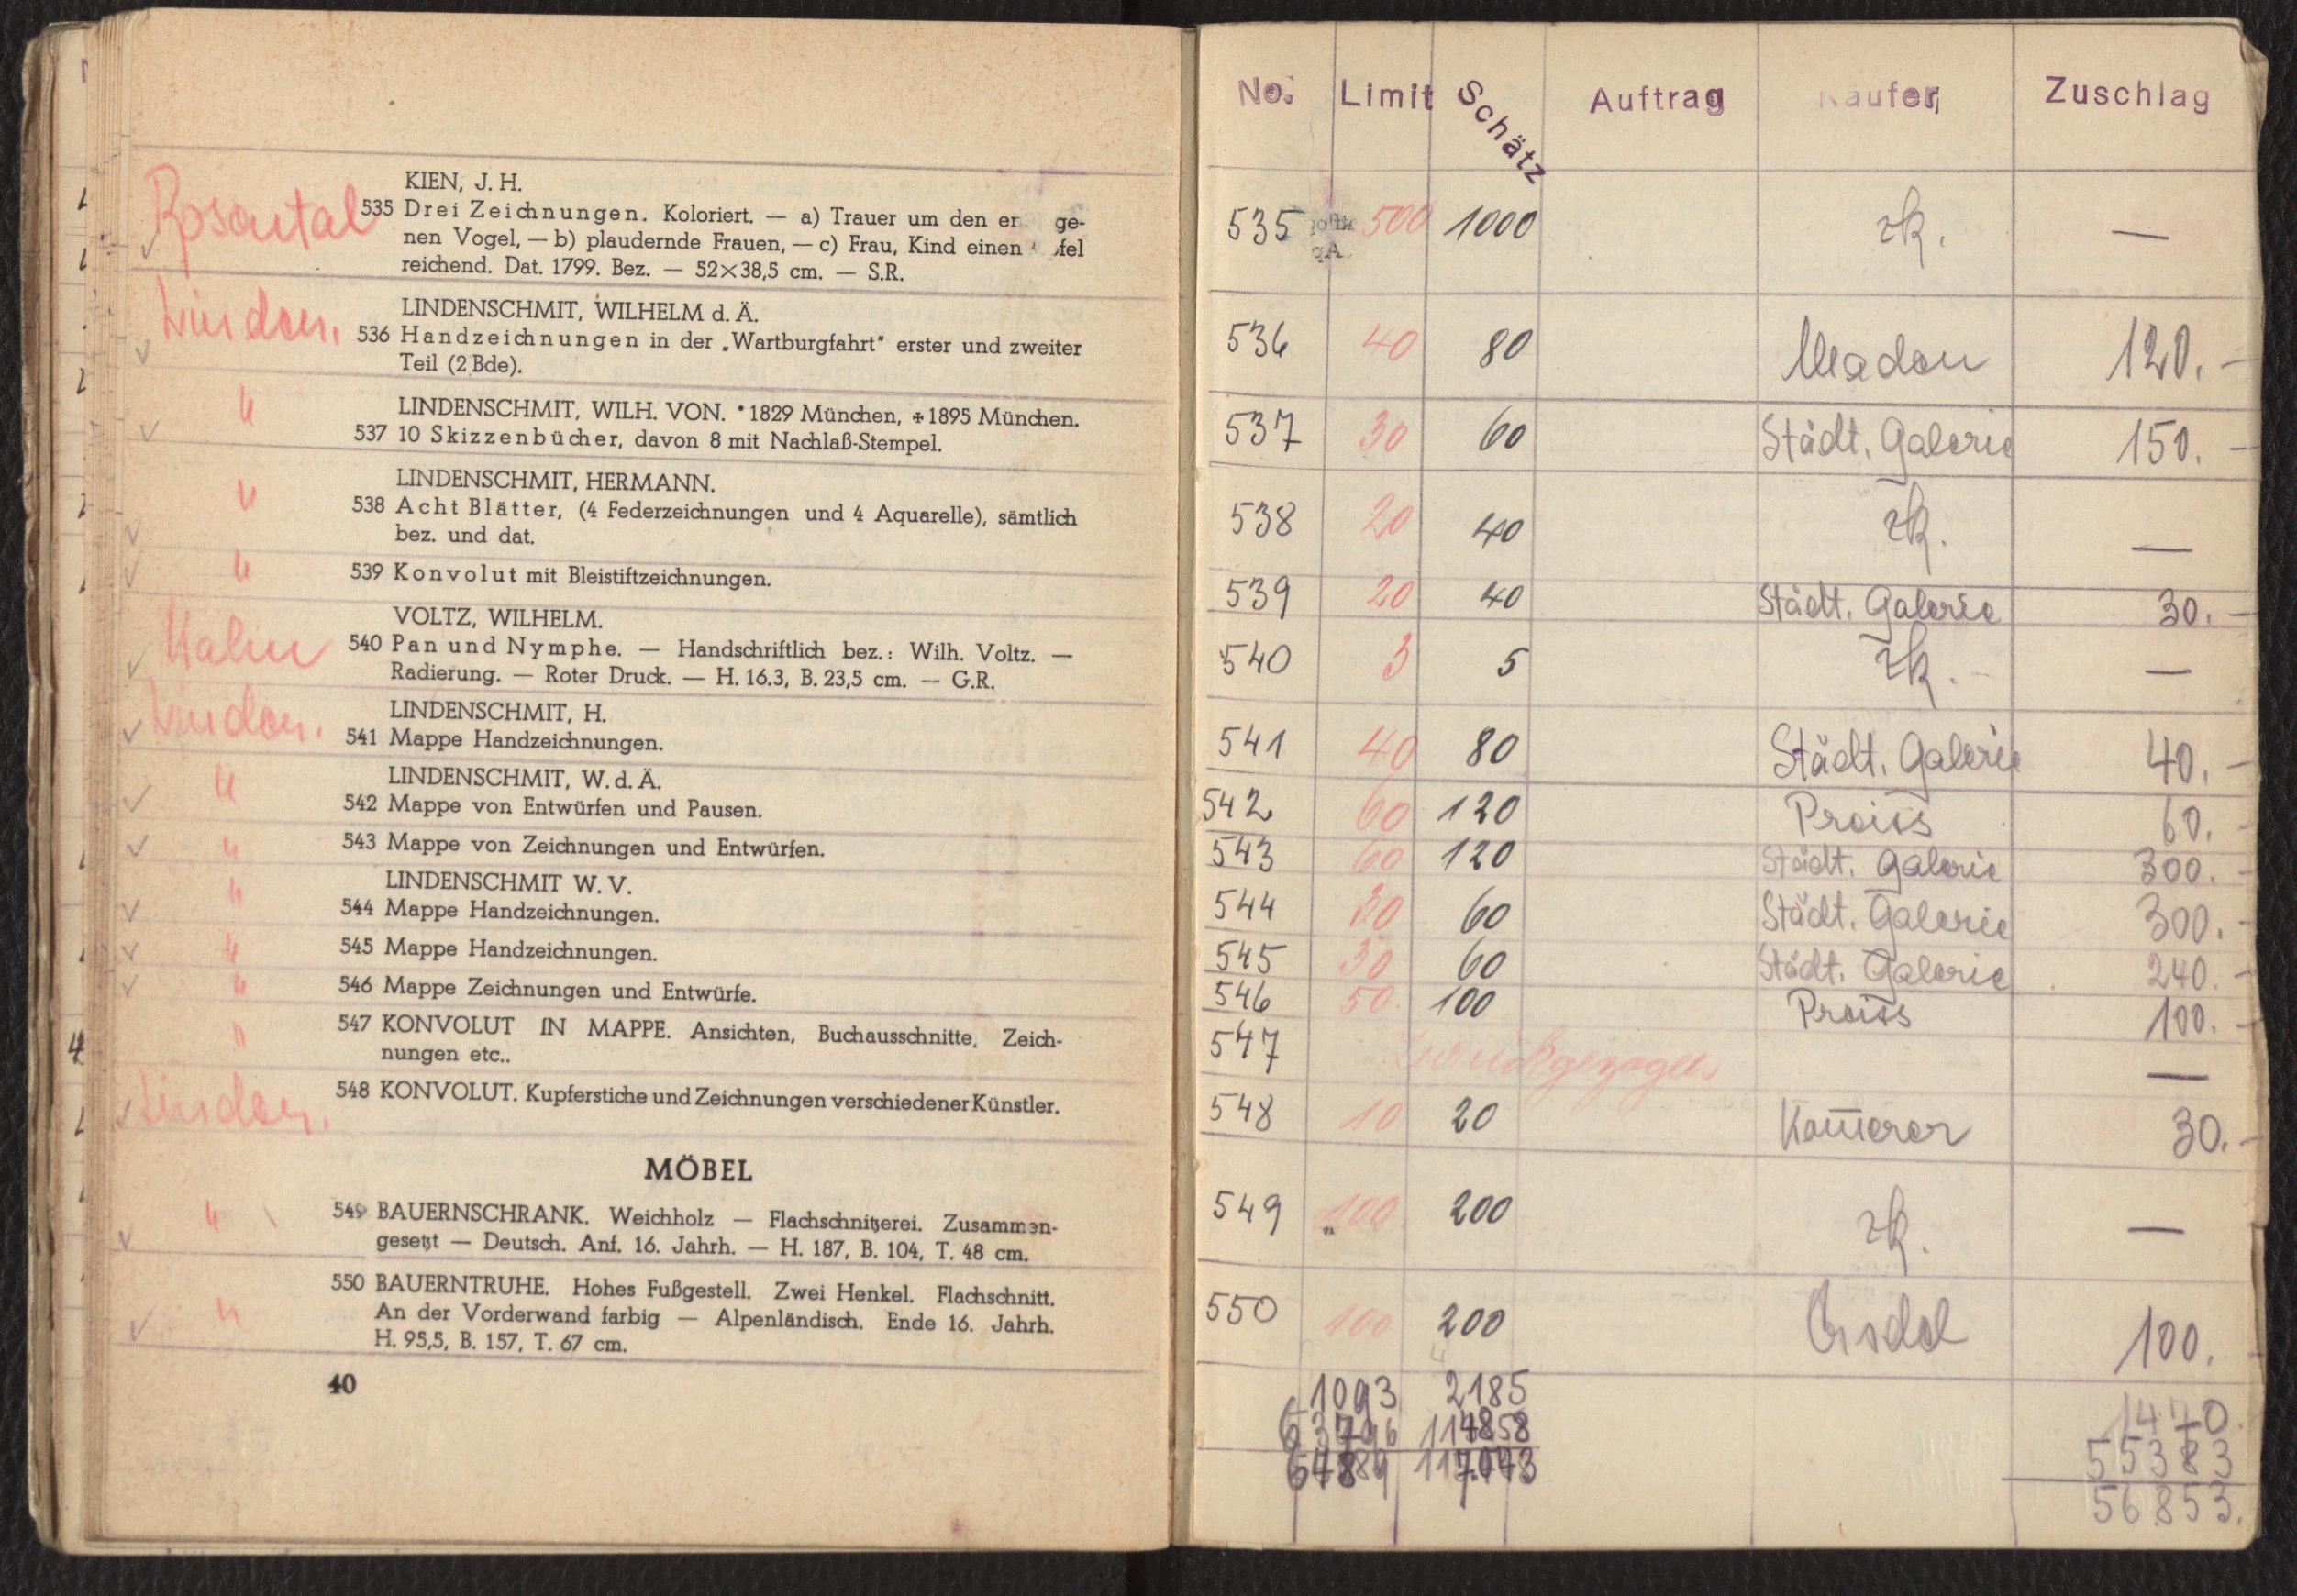 KIEN, J. H.
Rosental 535 Drei Zeichnungen. Koloriert. — a) Trauer um den er ge-
nen Vogel, — b) plaudernde Frauen, — c) Frau, Kind einen fel
reichend. Dat. 1799. Bez. — 52×38,5 cm. — S.R.
LINDENSCHMIT, WILHELM d. Ä.
Linden. 536 Handzeichnungen in der „Wartburgfahrt" erster und zweiter
Teil (2 Bde).
LINDENSCHMIT, WILH. VON. *1829 München, ✠1895 München.
" 537 10 Skizzenbücher, davon 8 mit Nachlaß-Stempel.
LINDENSCHMIT, HERMANN.
" 538 Acht Blätter, (4 Federzeichnungen und 4 Aquarelle), sämtlich
bez. und dat.
" 539 Konvolut mit Bleistiftzeichnungen.
VOLTZ, WILHELM.
540 Pan und Nymphe. — Handschriftlich bez.: Wilh. Voltz. —
Radierung. — Roter Druck. — H. 16.3, B. 23,5 cm. — G.R.
LINDENSCHMIT, H.
Linden. 541 Mappe Handzeichnungen.
LINDENSCHMIT, W. d. Ä.
" 542 Mappe von Entwürfen und Pausen.
" 543 Mappe von Zeichnungen und Entwürfen.
LINDENSCHMIT W. V.
" 544 Mappe Handzeichnungen.
" 545 Mappe Handzeichnungen.
" 546 Mappe Zeichnungen und Entwürfe.
" 547 KONVOLUT IN MAPPE. Ansichten, Buchausschnitte, Zeich-
nungen etc..
Linden. 548 KONVOLUT. Kupferstiche und Zeichnungen verschiedener Künstler.
MÖBEL
" 549 BAUERNSCHRANK. Weichholz — Flachschnitzerei. Zusammen-
gesetzt — Deutsch. Anf. 16. Jahrh. — H. 187, B. 104, T. 48 cm.
550 BAUERNTRUHE. Hohes Fußgestell. Zwei Henkel. Flachschnitt.
" An der Vorderwand farbig — Alpenländisch. Ende 16. Jahrh.
H. 95,5, B. 157, T. 67 cm.
40
No. Limit Schätz Auftrag Käufer Zuschlag
535 500 1000 zk. —
536 40 80 120.-
537 30 60 Städt. Galerie 150.-
538 20 40 zk. —
539 20 40 Städt. Galerie 30.-
540 3 5 zk. —
541 40 80 Städt. Galerie 40.-
542 60 120 Preiss 60.-
543 60 120 Städt. Galerie 300.-
544 30 60 Städt. Galerie 300.-
545 30 60 Städt. Galerie 240.-
546 50 100 Preiss 100.-
547 Zurückgezogen —
548 10 20 Kam̄erer 30.-
549 100 200 zk. —
550 100 200 100.
1093 2185 1470.
63796 114858 55383
64889 117.043 56853.